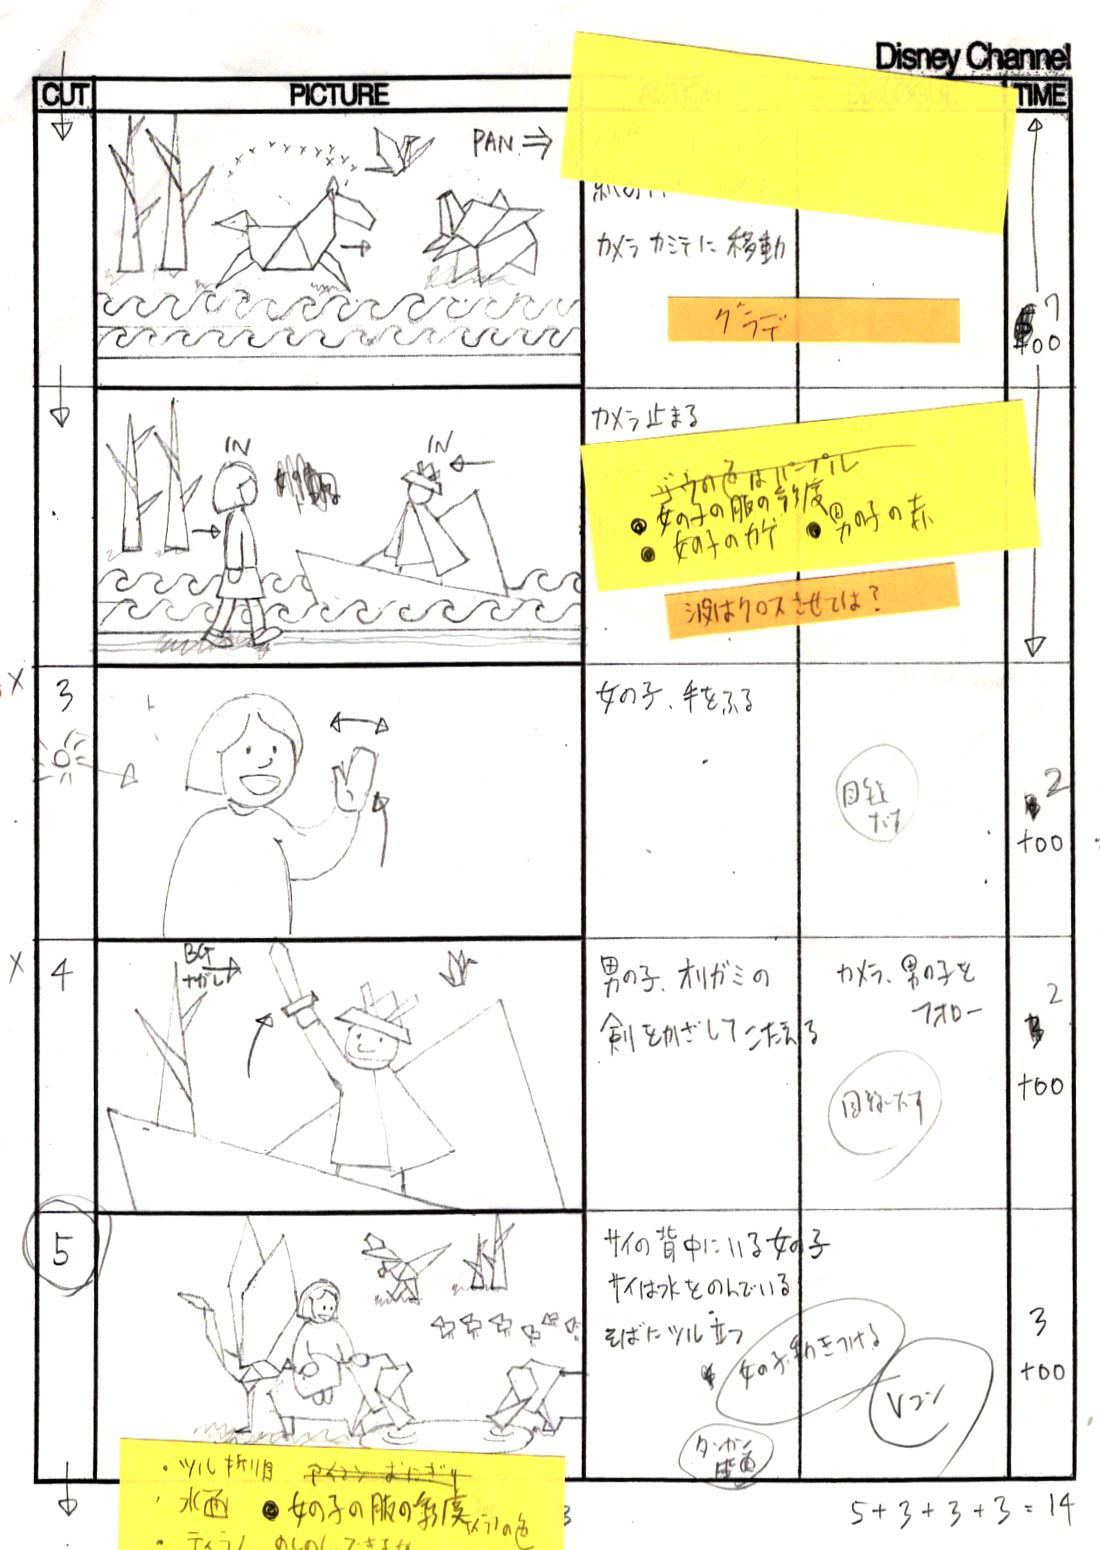 Disney Channel
CUT
PICTURE
TIME
PAN ⇒
カメラ カミテに 移動
グラデ
7
+00
カメラ止まる
IN
IN
ゾウの色はパープル
● 女の子の服の彩度
● 女の子のカゲ
● 男の子の森
波はクロスさせては?
3
女の子、手をふる
目線
2
+00
4
BG
ナガし
男の子、オリガミの
剣をかざしてこたえる
カメラ、男の子を
フォロー
2
+00
5
サイの背中にいる女の子
サイは水をのんでいる
そばにツル立つ
女の子動きつける
Vコン
3
+00
・ツル折り目
・水面
● 女の子の服の彩度
5+3+3+3=14